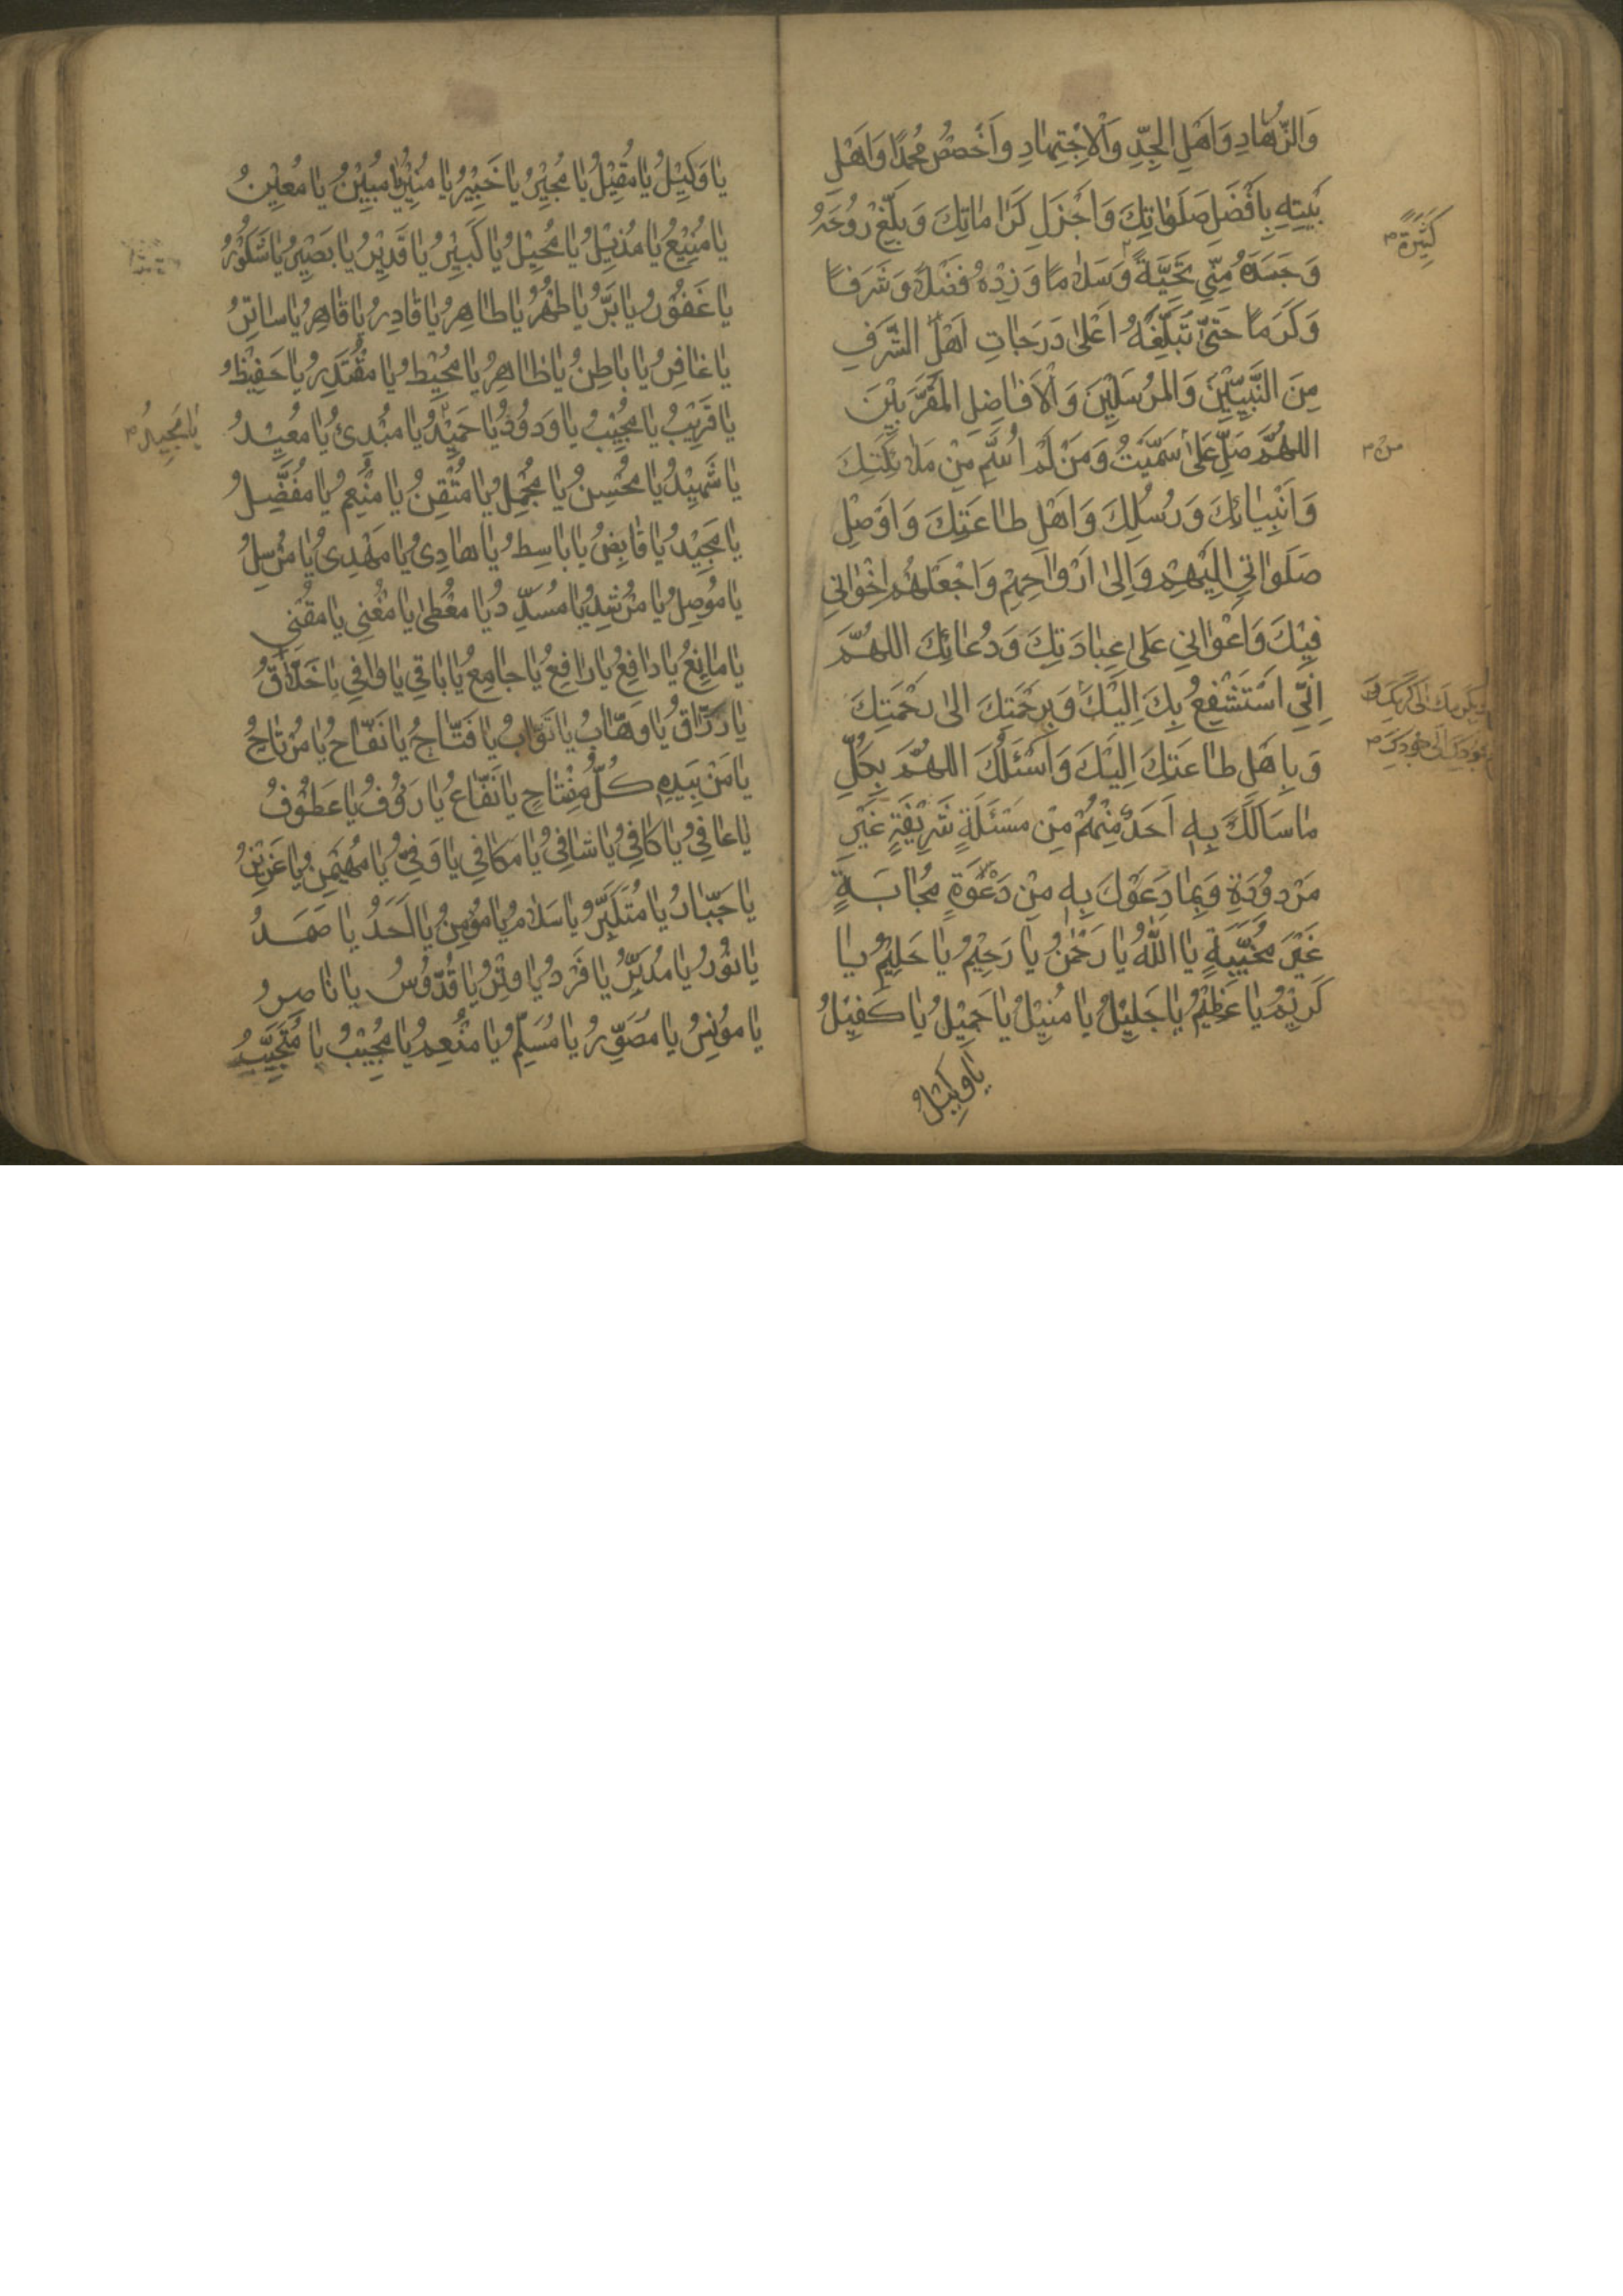 وَالزُّهّادِ وَاَهْلِ الجِدِّ وَالْاِجْتِهادِ وَاَخْصُصْ مُحَمَّدًا وَاَهْلِ
بَيْتِهِ بِاَفْضَلِ صَلَوٰاتِكَ وَاَجْزَلِ كَرٰامٰاتِكَ وَبَلِّغْ رُوحَهُ
كَثِيْرَةً
وَجَسَدَهُ مِنّي تَحِيَّةً وَسَلٰامًا وَزِدْهُ فَضْلًا وَشَرَفًا
وَكَرَمًا حَتّىٰ تُبَلِّغَهُ اَعْلىٰ دَرَجٰاتِ اَهْلِ الشَّرَفِ
مِنَ النَّبِيّيْنَ وَالمُرْسَلِيْنَ وَالْاَفٰاضِلِ المُقَرَّبِيْنَ
اللهُمَّ صَلِّ عَلىٰ سَمَّيْتُ وَمَنْ لَمْ اُسَمِّ مِنْ مَلٰائِكَتِكَ
من
وَاَنْبِيٰائِكَ وَرُسُلِكَ وَاَهْلِ طٰاعَتِكَ وَاَوْصِلْ
صَلَوٰاتي اِلَيْهِمْ وَاِلىٰ اَرْوٰاحِهِمْ وَاجْعَلْهُمْ اِخْوٰاني
فِيْكَ وَاَعْوٰاني عَلىٰ عِبٰادَتِكَ وَدُعٰائِكَ اللهُمَّ
اِنّي اَسْتَشْفِعُ بِكَ اِلَيْكَ وَبِرَحْمَتِكَ اِلىٰ رَحْمَتِكَ
وَبِكَرَمِكَ اِلىٰ كَرَمِكَ وَ
بِجُودِكَ اِلىٰ جُودِكَ
وَبِاَهْلِ طٰاعَتِكَ اِلَيْكَ وَاَسْئَلُكَ اللهُمَّ بِكُلِّ
مٰا سَاَلَكَ بِهِ اَحَدٌ مِنْهُمْ مِنْ مَسْئَلَةٍ شَرِيْفَةٍ غَيْرِ
مَرْدُودَةٍ وَبِمٰا دَعَوْكَ بِهِ مِنْ دَعْوَةٍ مُجٰابَةٍ
غَيْرَ مُخَيَّبَةٍ يٰا اَللّٰهُ يٰا رَحْمٰنُ يٰا رَحِيْمُ يٰا حَلِيْمُ يٰا
كَرِيْمُ يٰا عَظِيْمُ يٰا جَلِيْلُ يٰا مُنِيْلُ يٰا جَمِيْلُ يٰا كَفِيْلُ
يٰا وَكِيْلُ
يٰا وَكِيْلُ يٰا مُقِيْلُ يٰا مُجِيْرُ يٰا خَبِيْرُ يٰا مُنِيْرُ يٰا مُبِيْنُ يٰا مُعِيْنُ
يٰا مَنِيْعُ يٰا مُذِيْلُ يٰا مُحِيْلُ يٰا كَبِيْرُ يٰا قَدِيْرُ يٰا بَصِيْرُ يٰا شَكُوْرُ
يٰا غَفُوْرُ يٰا بَرُّ يٰا طُهْرُ يٰا طٰاهِرُ يٰا قٰادِرُ يٰا قٰاهِرُ يٰا سٰاتِرُ
يٰا غٰافِرُ يٰا بٰاطِنُ يٰا ظٰاهِرُ يٰا مُحِيْطُ يٰا مُقْتَدِرُ يٰا حَفِيْظُ
يٰا قَرِيْبُ يٰا مُجِيْبُ يٰا وَدُوْدُ يٰا حَمِيْدُ يٰا مُبْدِئُ يٰا مُعِيْدُ
يٰا مَجِيدُ
يٰا شَهِيْدُ يٰا مُحْسِنُ يٰا مُجْمِلُ يٰا مُتْقِنُ يٰا مُنْعِمُ يٰا مُفَضِّلُ
يٰا مَجِيْدُ يٰا قٰابِضُ يٰا بٰاسِطُ يٰا هٰادِىُ يٰا مَهْدِىُ يٰا مُرْسِلُ
يٰا مُوصِلُ يٰا مُرْشِدُ يٰا مُسَدِّدُ يٰا مُعْطىٰ يٰا مُغْنِي يٰا مُقْنِي
يٰا مٰانِعُ يٰا دٰافِعُ يٰا رٰافِعُ يٰا جٰامِعُ يٰا بٰاقي يٰا وٰافي يٰا خَلّٰاقُ
يٰا رَزّٰاقُ يٰا وَهّٰابُ يٰا تَوّٰابُ يٰا فَتّٰاحُ يٰا نَفّٰاحُ يٰا مُرْتٰاحُ
يٰا مَنْ بِيَدِهِ كُلُّ مِفْتٰاحٍ يٰا نَفّٰاعُ يٰا رَءُوفُ يٰا عَطُوْفُ
يٰا عٰافي يٰا كٰافِيُ يٰا شٰافِيُ يٰا مُكٰافي يٰا وَفِيُّ يٰا مُهَيْمِنُ يٰا عَزِيْزُ
يٰا جَبّٰارُ يٰا مُتَكَبِّرُ يٰا سَلٰامُ يٰا مُؤْمِنُ يٰا اَحَدُ يٰا صَمَدُ
يٰا نُوْرُ يٰا مُدَبِّرُ يٰا فَرْدُ يٰا وِتْرُ يٰا قُدُّوسُ يٰا نٰاصِرُ
يٰا مُوْنِسُ يٰا مُصَوِّرُ يٰا مُسَلِّمُ يٰا مُنْعِمُ يٰا مُجِيْبُ يٰا مُتَجَبِّبُ